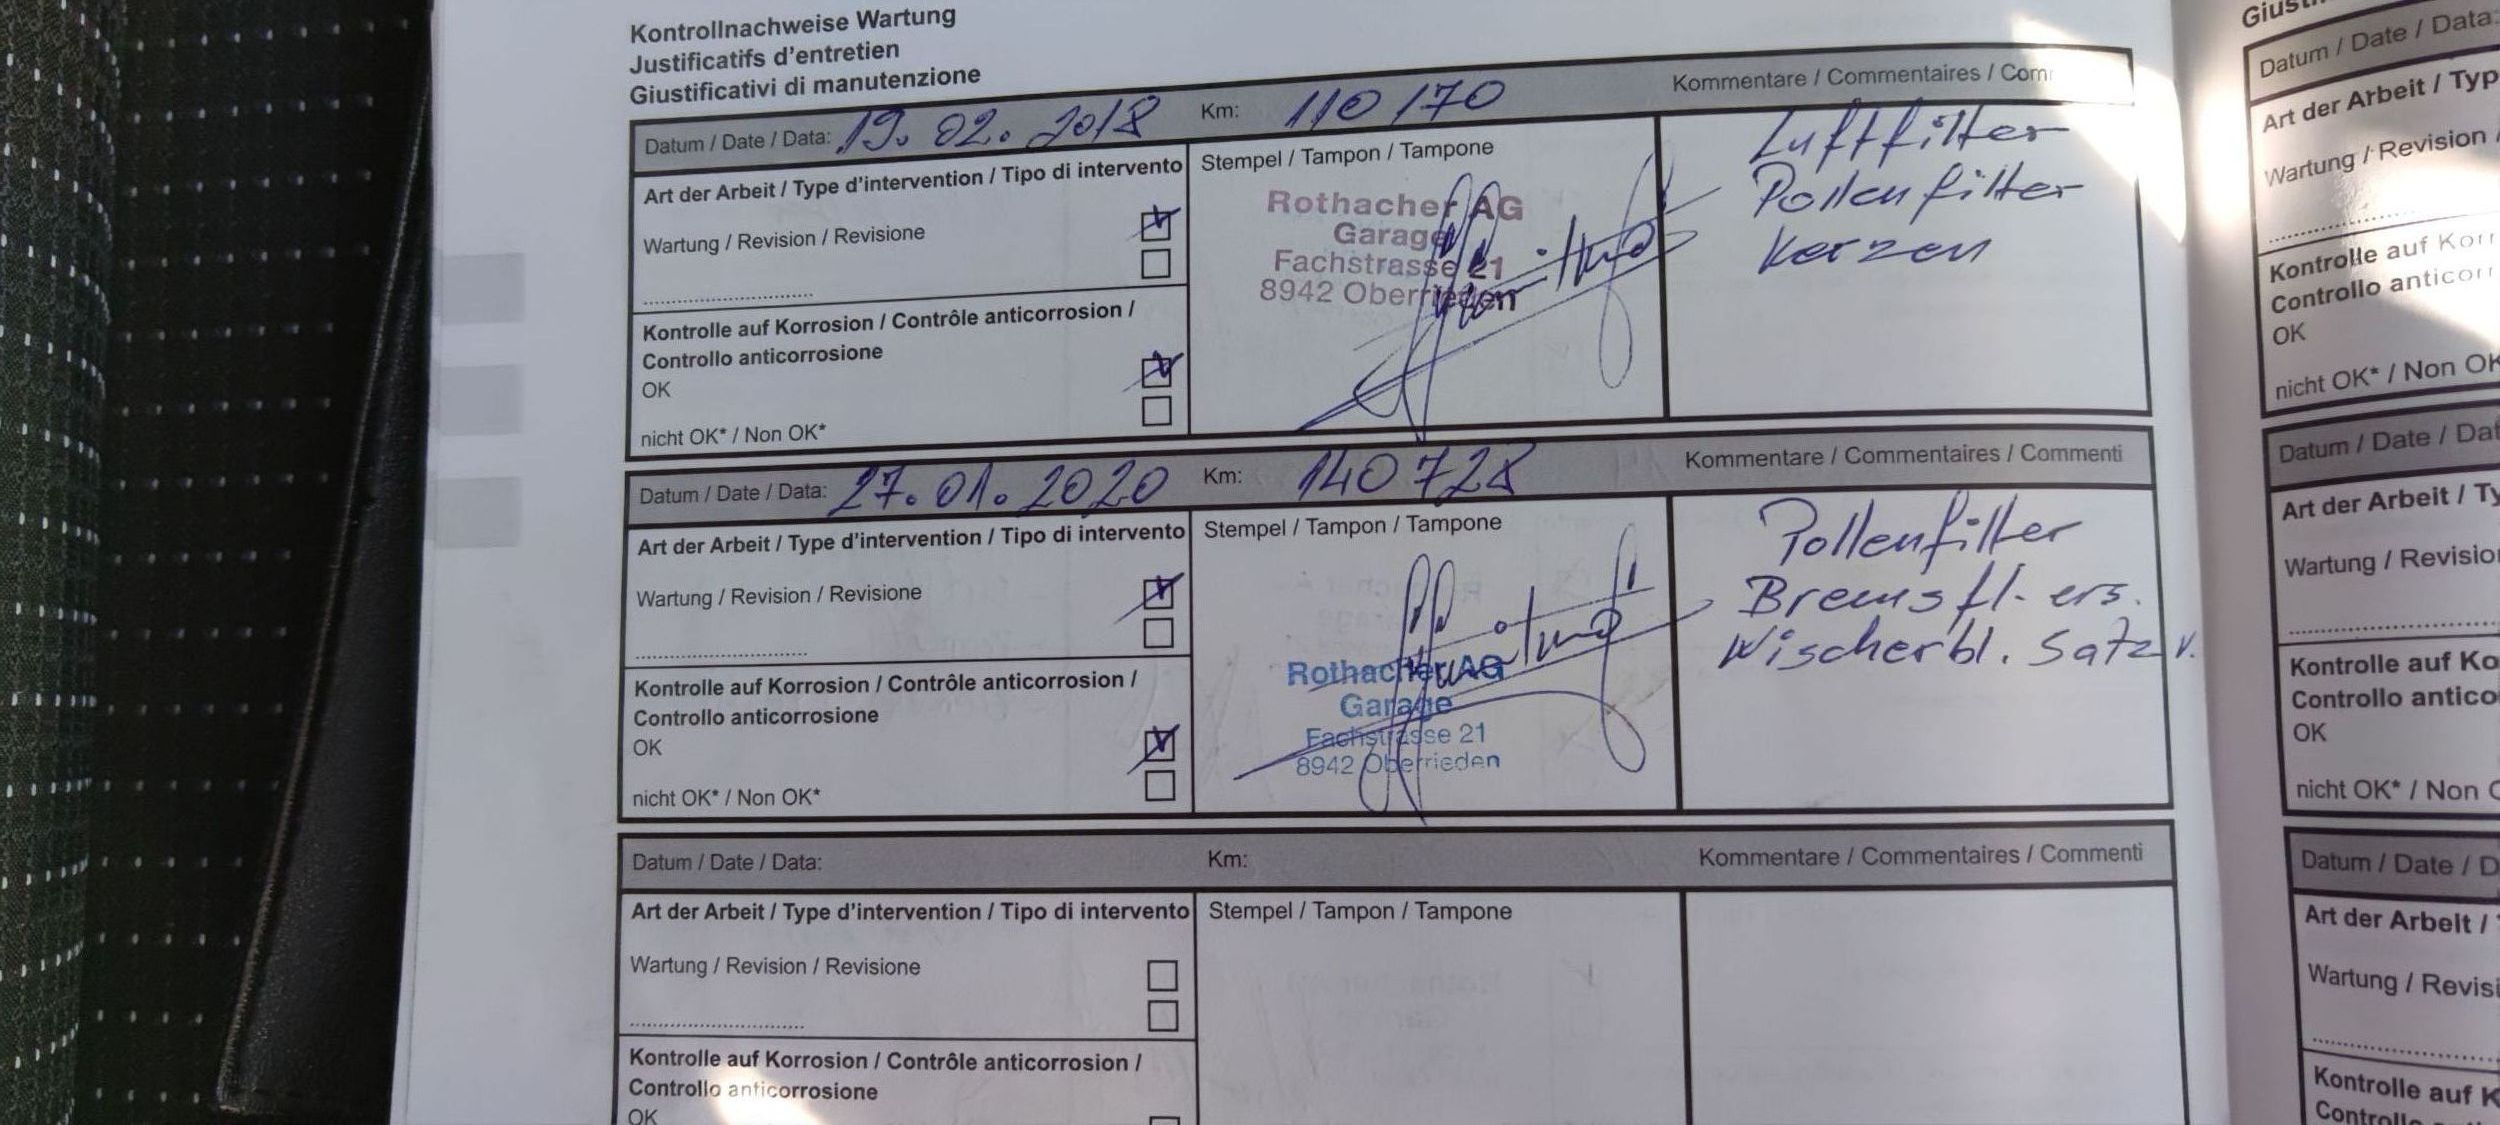 Kontrollnachweise Wartung
Justificatifs d'entretien
Giustificativi di manutenzione
Datum / Date / Data: 19.02.2018 Km: 110170 Kommentare / Commentaires / Com
Art der Arbeit / Type d'intervention / Tipo di intervento
Wartung / Revision / Revisione
Kontrolle auf Korrosion / Contrôle anticorrosion /
Controllo anticorrosione
OK
nicht OK* / Non OK*
Stempel / Tampon / Tampone
Rothacher AG
Garage
Fachstrasse 21
8942 Oberrieden
Luftfilter
Pollenfilter
Kerzen
Datum / Date / Data: 27.01.2020 Km: 140728 Kommentare / Commentaires / Commenti
Art der Arbeit / Type d'intervention / Tipo di intervento
Wartung / Revision / Revisione
Kontrolle auf Korrosion / Contrôle anticorrosion /
Controllo anticorrosione
OK
nicht OK* / Non OK*
Stempel / Tampon / Tampone
Rothacher AG
Garage
Fachstrasse 21
8942 Oberrieden
Pollenfilter
Bremsfl. ers.
Wischerbl. Satz v.
Datum / Date / Data: Km: Kommentare / Commentaires / Commenti
Art der Arbeit / Type d'intervention / Tipo di intervento
Wartung / Revision / Revisione
Kontrolle auf Korrosion / Contrôle anticorrosion /
Controllo anticorrosione
OK
Stempel / Tampon / Tampone
Datum / Date / Data:
Art der Arbeit / Typ
Wartung / Revision /
Kontrolle auf Korr
Controllo anticorr
OK
nicht OK* / Non OK
Datum / Date / Dat
Art der Arbeit / Ty
Wartung / Revisio
Kontrolle auf Ko
Controllo antico
OK
nicht OK* / Non O
Datum / Date / D
Art der Arbeit /
Wartung / Revisi
Kontrolle auf K
Controllo